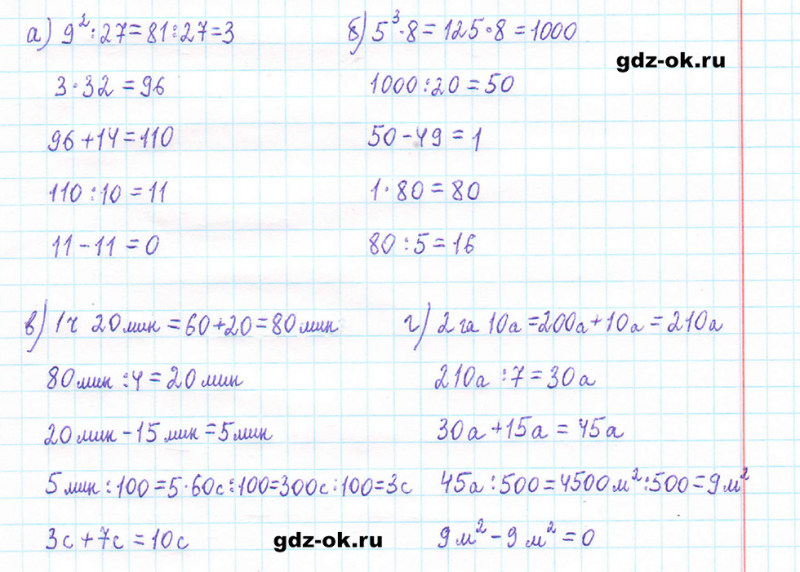 а) 9²:27=81:27=3
3·32=96
96+14=110
110:10=11
11-11=0
б) 5³·8=125·8=1000
1000:20=50
50-49=1
1·80=80
80:5=16
gdz-ok.ru
в) 1ч 20мин=60+20=80мин
80мин:4=20мин
20мин-15мин=5мин
5мин:100=5·60с:100=300с:100=3с
3с+7с=10с
г) 2га 10а=200а+10а=210а
210а:7=30а
30а+15а=45а
45а:500=4500м²:500=9м²
9м²-9м²=0
gdz-ok.ru